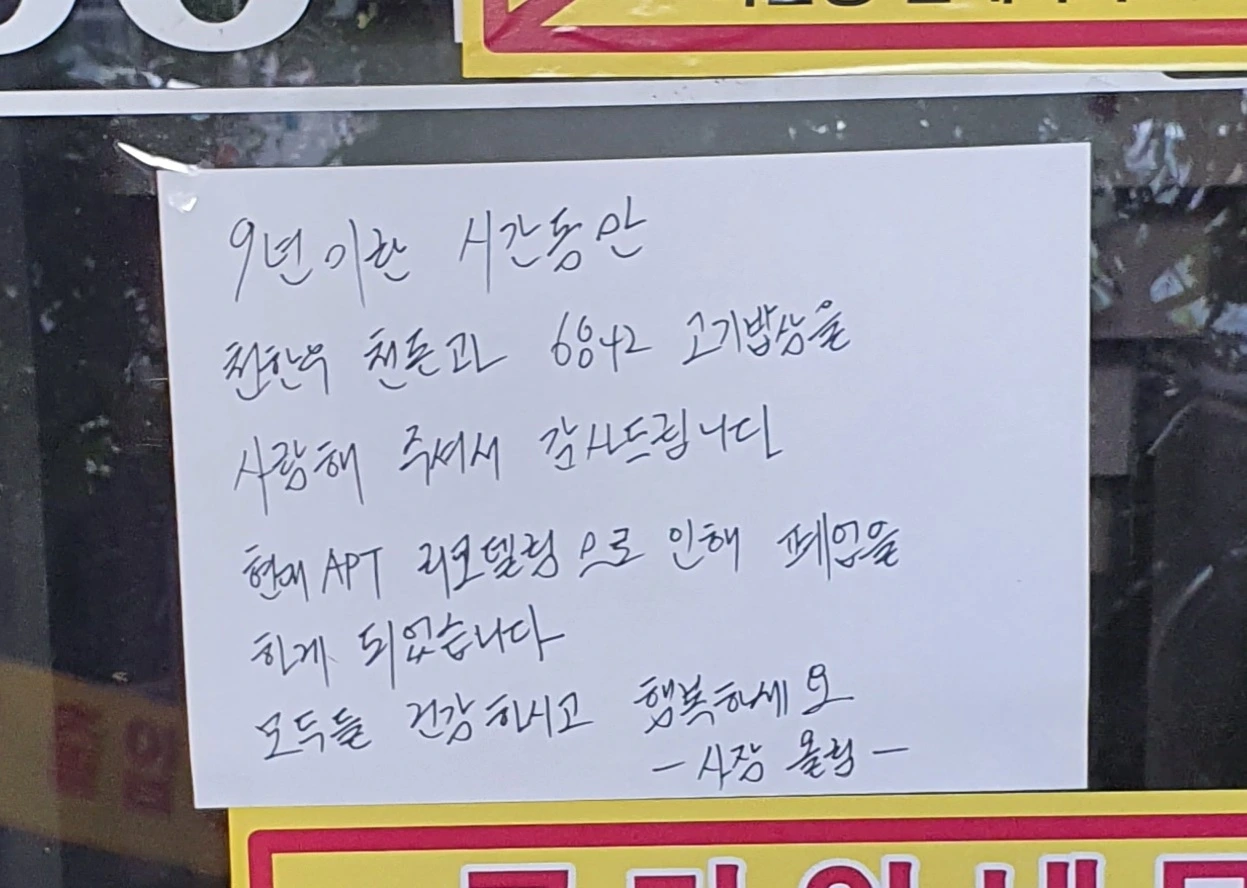 9년이란 시간동안
천한우 천돈과 6042 고기밥상을
사랑해 주셔서 감사드립니다
현재 APT 리모델링으로 인해 폐업을
하게 되었습니다
모두들 건강하시고 행복하세요
- 사장 올림 -